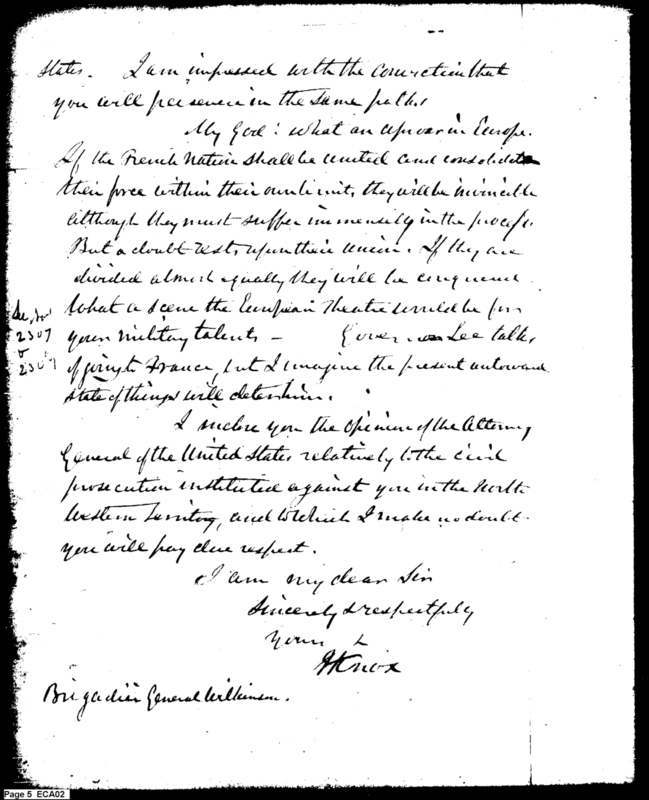 States. I am impressed with the conviction that
you will persevere in the same path.
My God! what an uproar in Europe.
If the French Nation shall be united and consolidate
their force within their own limits they will be invincible
although they must suffer immensely in the process.
But a doubt rests upon their union. If they are
divided almost equally they will be conquered.
What a scene the European Theatre would be for
your military talents – Governor Lee talks
of going to France, but I imagine the present untoward
state of things will determine.
I inclose you the opinion of the Attorney
General of the United States relatively to the civil
prosecution instituted against you in the North
Western Territory, and to which I make no doubt
you will pay due respect.
I am my dear Sir
Sincerely & respectfully
Yours
HKnox
Brigadier General Wilkinson.
2307
2307
Page 5 ECA02